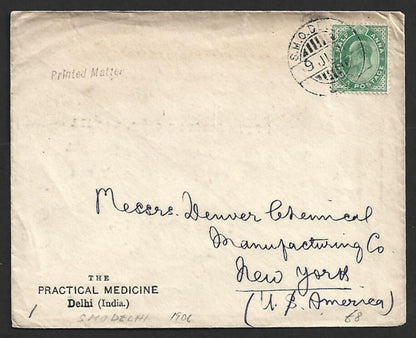 S.M.O. DE
9 JU
HALF ANNA
POSTAGE
Printed Matter
Messrs. Denver Chemical
Manufacturing Co
New York
(U.S. America)
THE
PRACTICAL MEDICINE
Delhi (India.)
S.M.O DELHI 1906
68